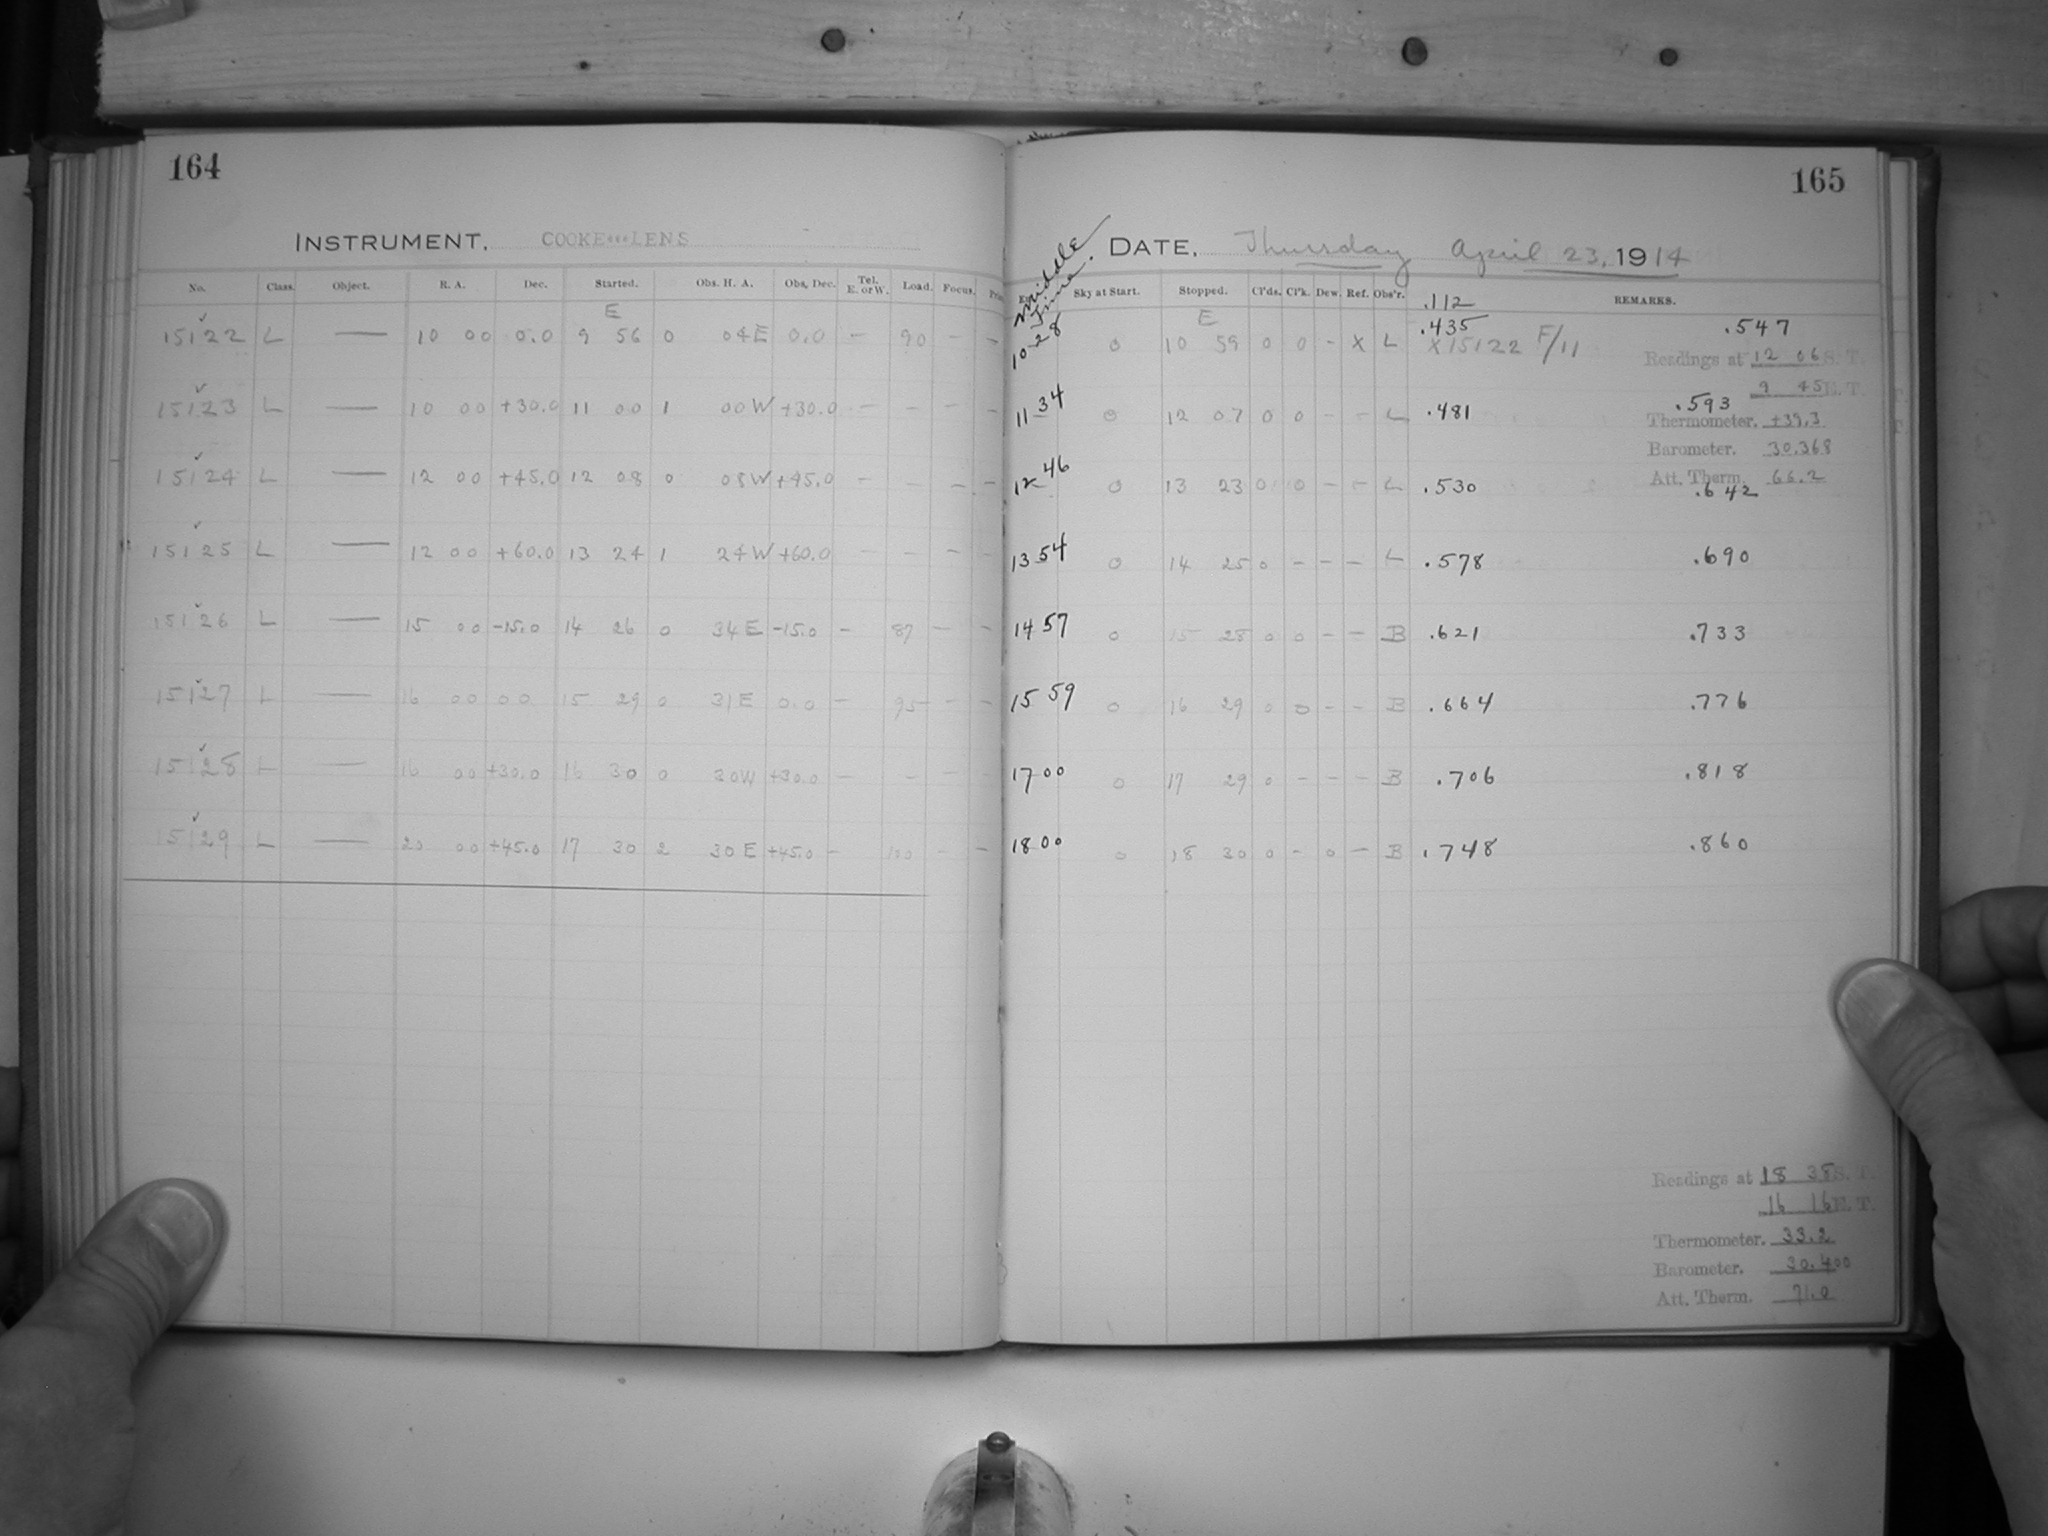 164
INSTRUMENT. COOKE LENS
No. Class. Object. R. A. Dec. Started. Obs. H. A. Obs. Dec. Tel. E. or W. Load. Focus.
E
15122 L — 10 00 0.0 9 56 0 04 E 0.0 — 90 — —
15123 L — 10 00 +30.0 11 00 1 00 W +30.0 — — — —
15124 L — 12 00 +45.0 12 08 0 08 W +45.0 — — — —
15125 L — 12 00 +60.0 13 24 1 24 W +60.0 — — — —
15126 L — 15 00 -15.0 14 26 0 34 E -15.0 — 87 — —
15127 L — 16 00 00 15 29 0 31 E 0.0 — 95 — —
15128 L — 16 00 +30.0 16 30 0 30 W +30.0 — — — —
15129 L — 20 00 +45.0 17 30 2 30 E +45.0 — 100 — —
165
DATE, Thursday April 23, 1914
Middle Time.
Sky at Start. Stopped. Cl'ds. Cl'k. Dew. Ref. Obs'r. REMARKS.
.112
E
10 28 0 10 59 0 0 - X L .435 .547
X15122 F/11
Readings at 12 06 S. T.
9 45 E. T.
11 34 0 12 07 0 0 - - L .481 .593
Thermometer. +39.3
Barometer. 30.368
Att. Therm. 66.2
12 46 0 13 23 0 0 - - L .530 .642
13 54 0 14 25 0 - - - L .578 .690
14 57 0 15 28 0 0 - - B .621 .733
15 59 0 16 29 0 0 - - B .664 .776
17 00 0 17 29 0 - - - B .706 .818
18 00 0 18 30 0 - 0 - B .748 .860
Readings at 18 38 S. T.
16 16 E. T.
Thermometer. 33.2
Barometer. 30.400
Att. Therm. 71.0